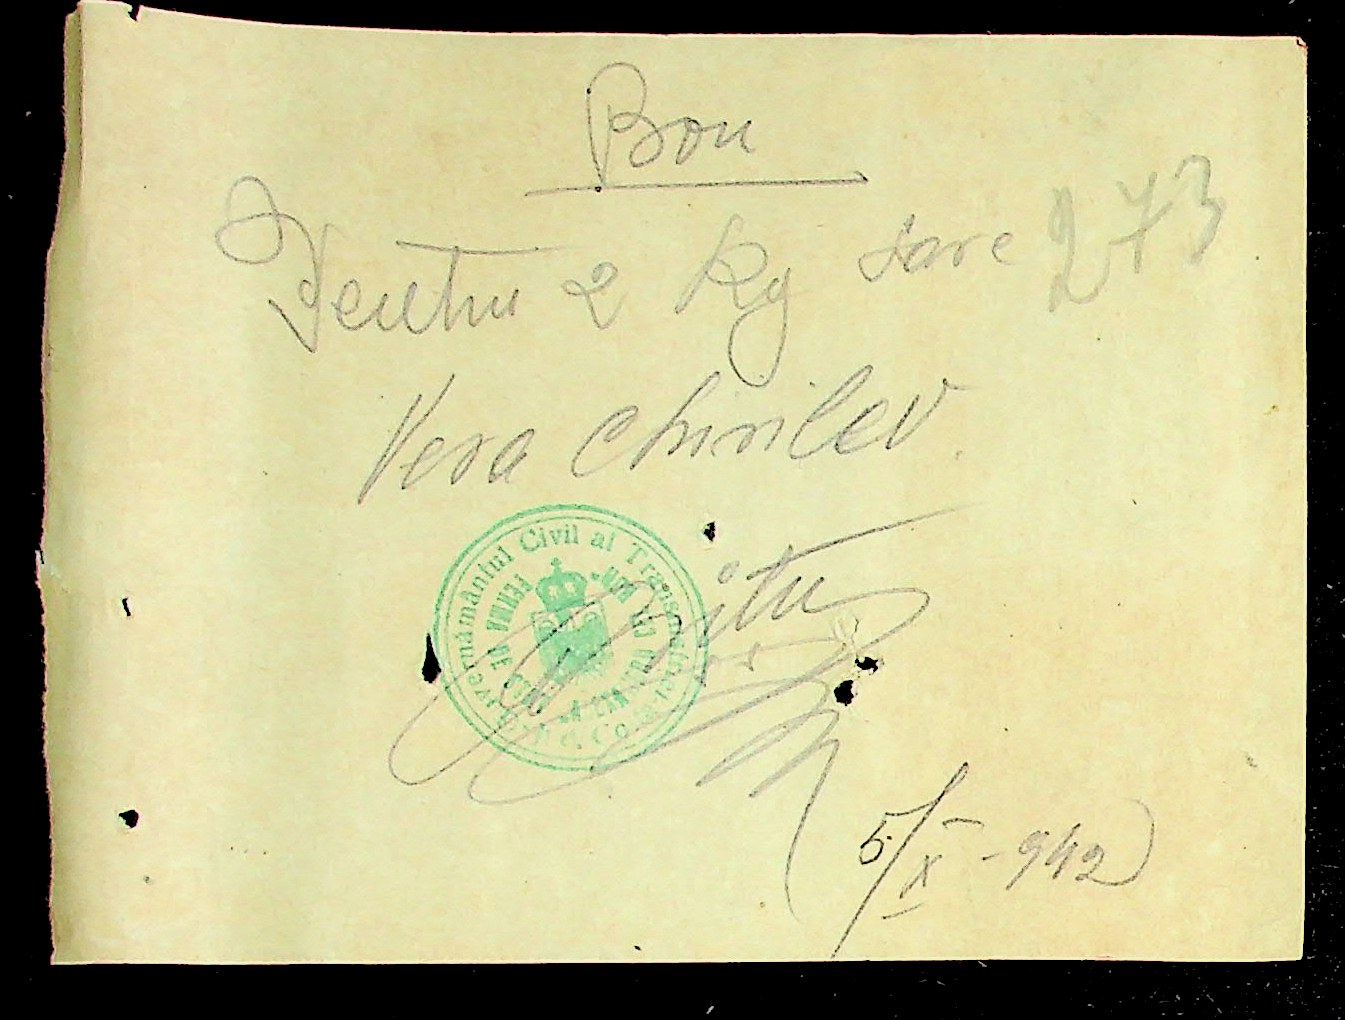 Bon
Pentru 2 Kg sare 273
Vera Chirilev
Guvernământul Civil al Transnistriei
FERMA DE STAT
5/X - 942